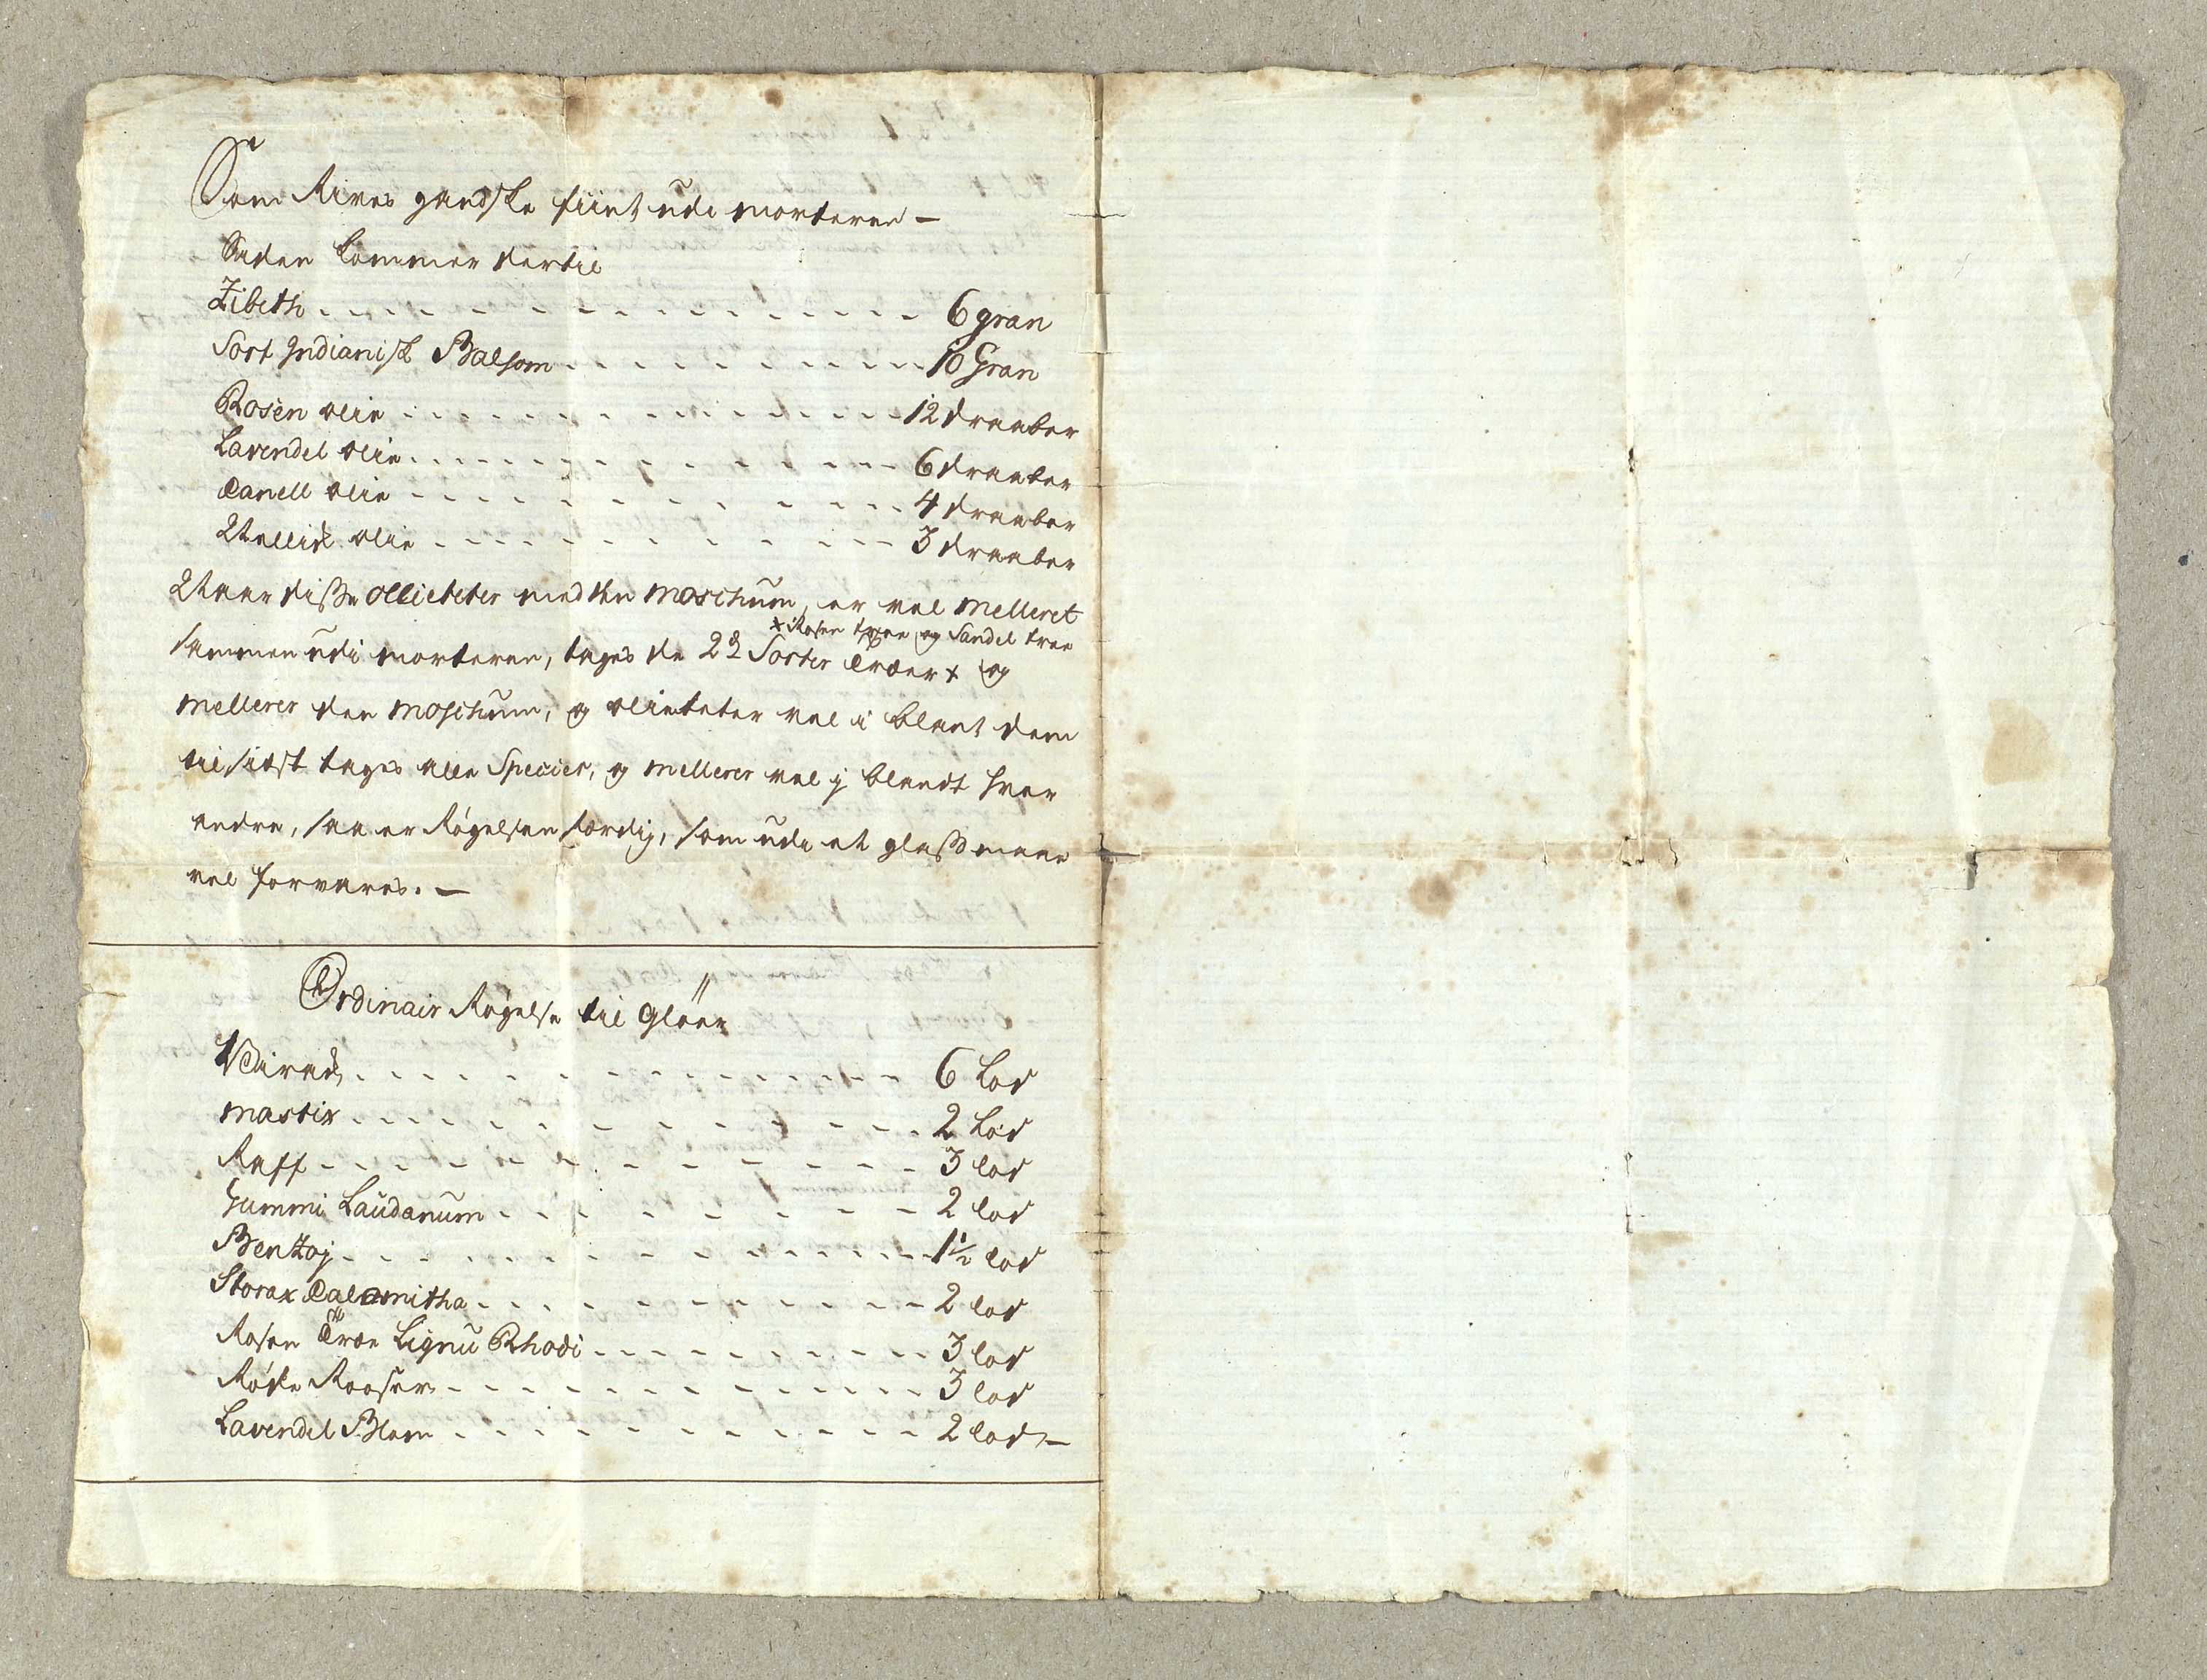 Som Rives gandske fiint udi morteren –
Siden kommer dertil
Zibeth 6 gran
Sort Indianisk Balsom 10 Gran
Rosen olie 12 draaber
Lavendel olie 6 draaber
Canell olie 4 draaber
Nellick olie 3 draaber
Naar disse ollieteter med den moschum, er vel melleret
x Rosen træe og Sandel træ
sammen udi morteren, tages de 2de Sorter Træer x og
mellerer den moschum, og olieteter vel i blant dem
til sidst tages alle Specier, og mellerer vel j blandt hver
andre, saa er Røgelsen færdig, som udi et glass maae
vel forvares. –
Ordinair Røgelse til Gløer
Virack 6 Lod
mastix 2 Lod
Raff 3 lod
Gummi Laudanum 2 lod
Bentzoj 1½ lod
Storax Calamitha 2 lod
Rosen Træe Lignu Rhodi 3 lod
Røde Rooser 3 lod
Lavendel Blom 2 lod –